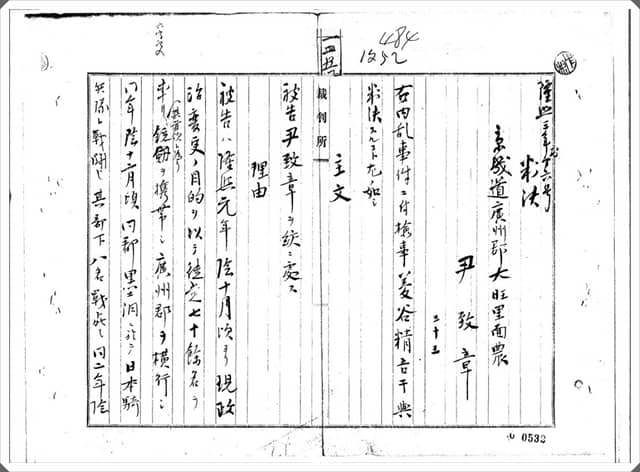 484
1252
隆熙三年刑第六号
判決
京畿道廣州郡大旺里面農
尹致章
三十三
右内乱事件ニ付検事菱谷精吾干與
判決スルコト左ノ如シ
主文
被告尹致章ヲ絞ニ處ス
理由
被告ハ隆熙元年陰十月頃ヨリ現政
治変更ノ目的ヲ以テ徒党七十餘名ヲ
率ヒ銃劔ヲ携帯シ廣州郡ヲ横行シ
同年陰十二月頃同郡黒洞ニ於テ日本騎
兵隊ト戰鬪シ其部下八名戰死シ同二年陰
裁判所
0532